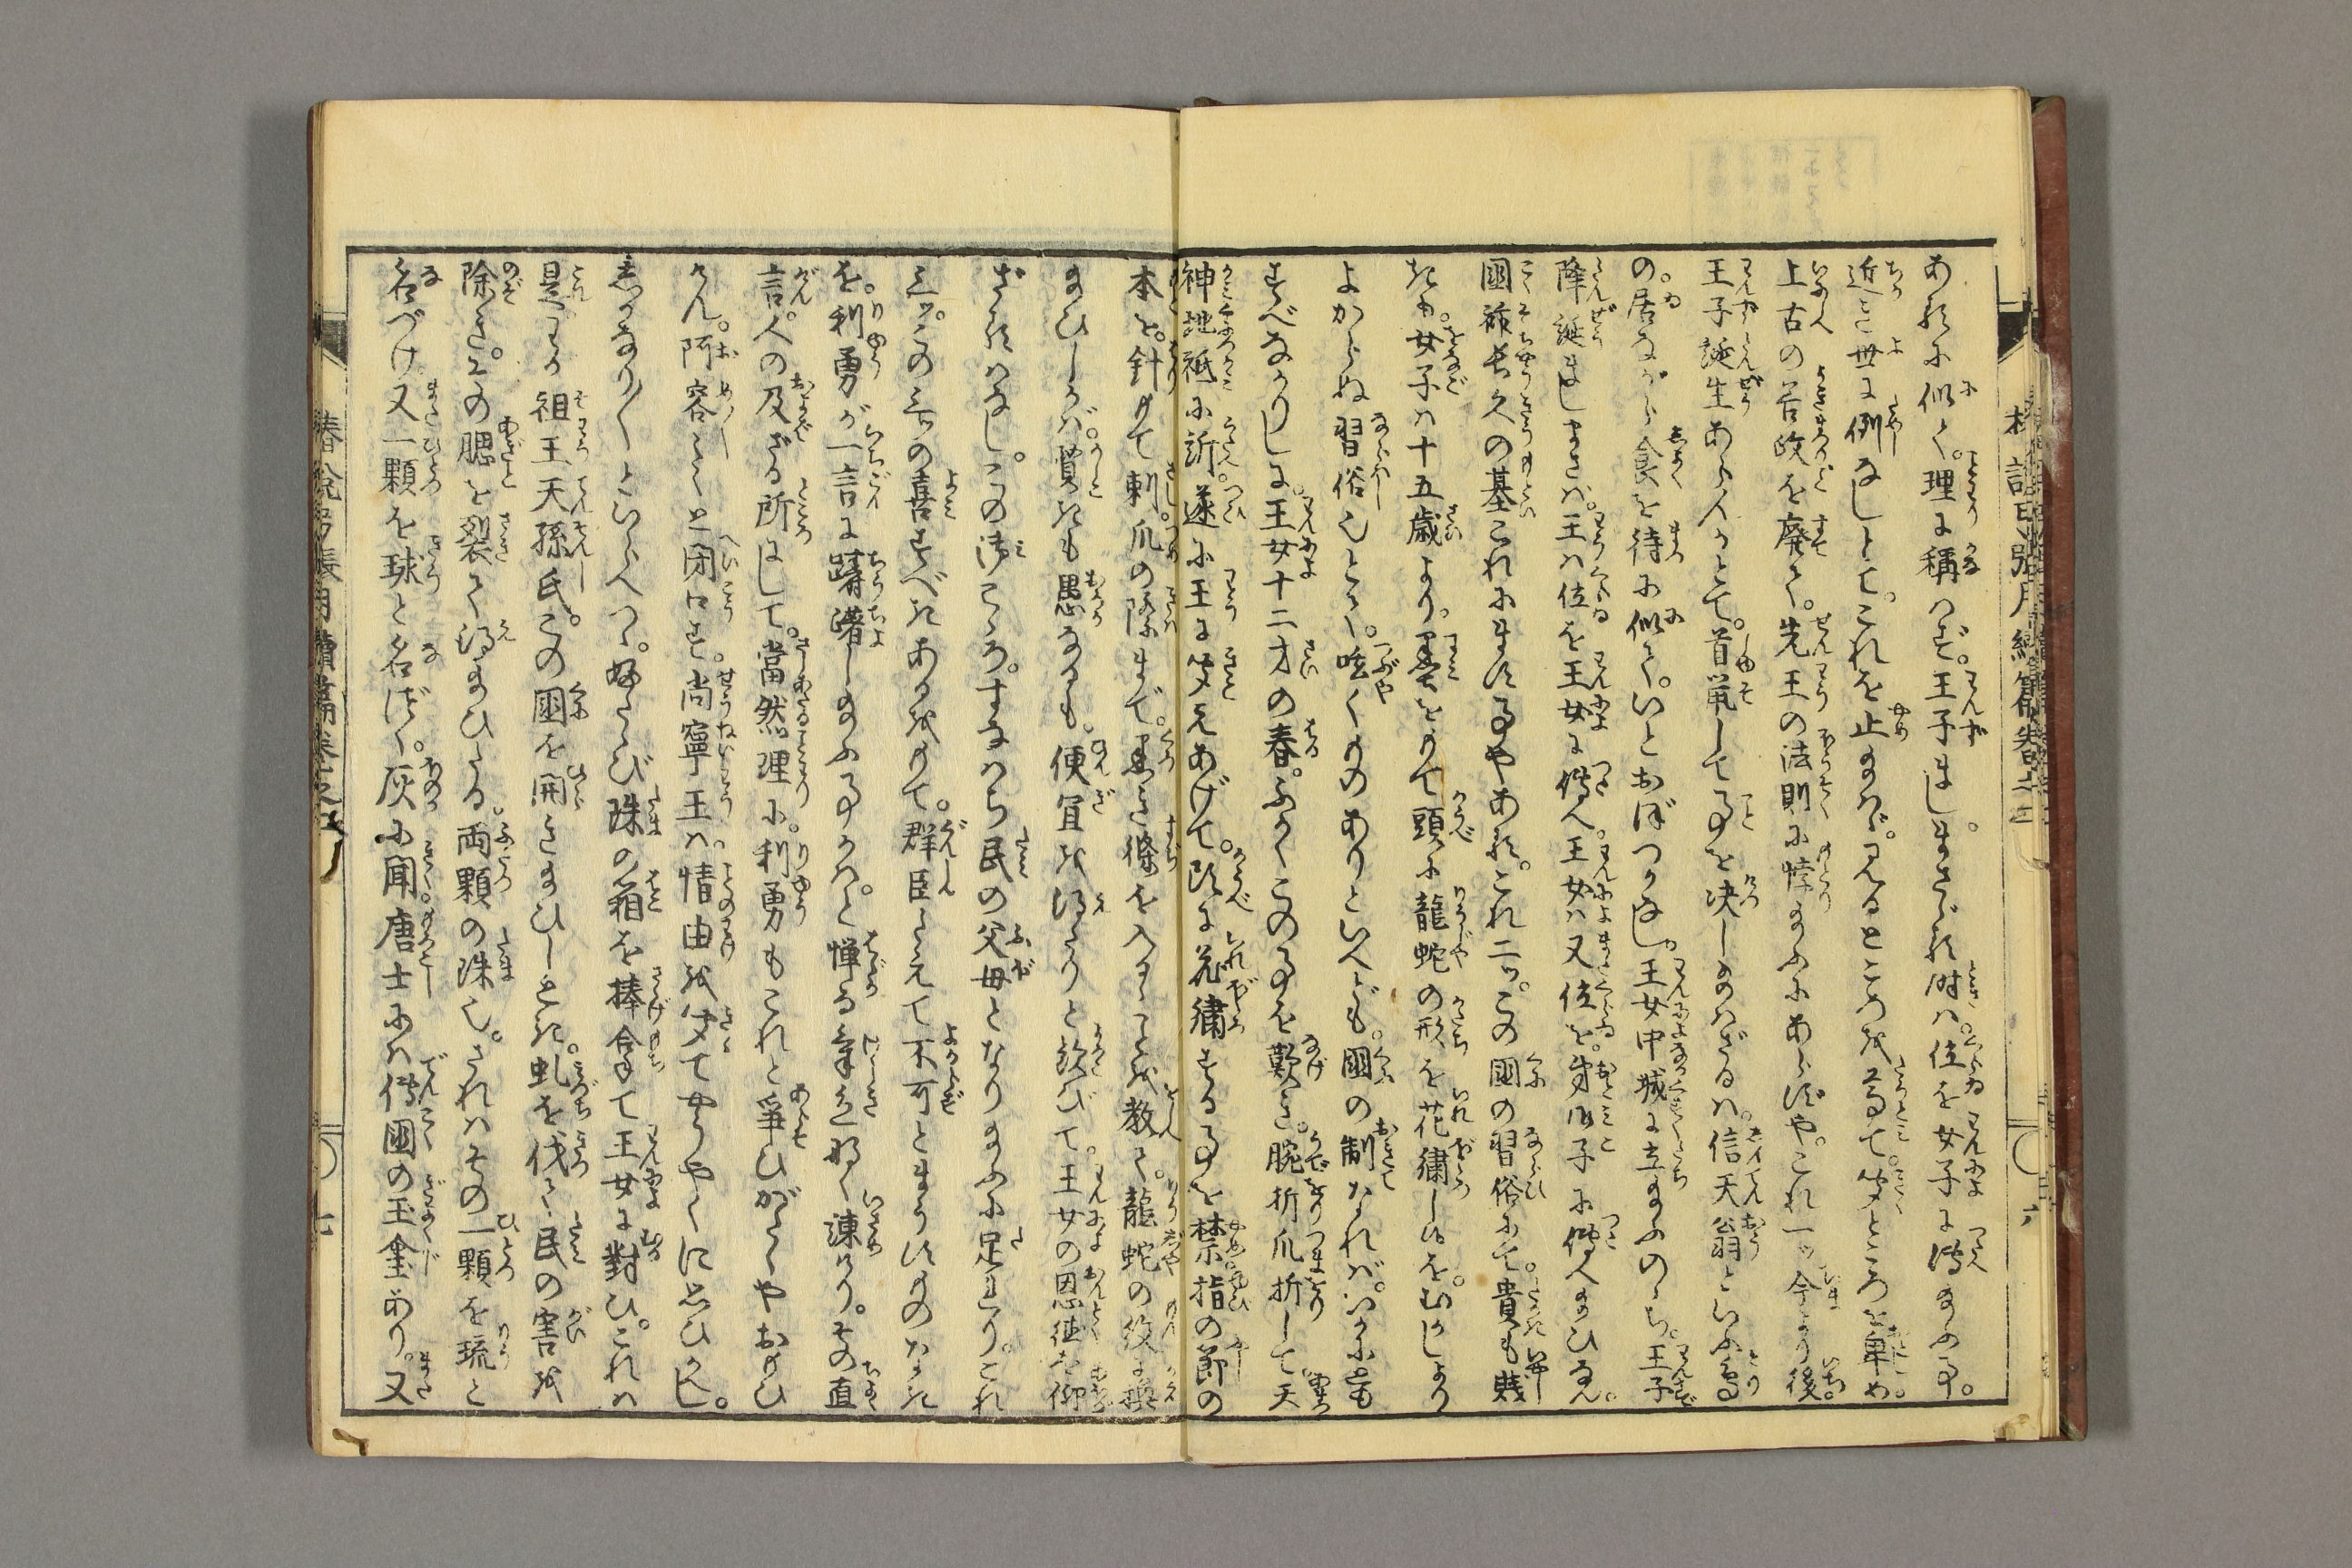 あるに似て。理に稱はず。王子ましまさゞる時は。位を女子に傳ふ事。
近き世に例なしとて。これを止めば。見るところを尊て。聞ところを卑め
上古の善政を廢て。先王の法則に悖まふにあらずや。これ一ッ今より後。
王子誕生あらんかとて。首鼠して事を决しのはざるは。信天翁といふ鳥
の。居ながら食を待に似て。いとおぼつかなし。王女中城に立まふのち。王子
降誕ましまさば。王は位を王女に傳へ。王女は又位を。弟御子に傳へまひなん。
國祚長久の基これにます事やある。これ二ッ。この國の習俗にて。貴も賤
きも。女子は十五歳より。墨をもて頭に龍蛇の形を花繍しぬるを。むかしより
よからぬ習俗也とて。呟くものありといへども。國の制なれば。いかにとも
すべなかりしに。王女十二才の春。ふかくこの事を歎き。腕折爪折して天
神地祇に祈。遂に王に聞えあげて。頭に花繍する事を禁。指の節の
本を。針もて刺。爪の際まで。黒き條を入るゝことを教て。龍蛇の紋に換
まひしかば。賢きも愚なるも。便宜を得たりと歓びて。王女の恩徳を仰
ざるはなし。この御こゝろ。すなはち民の父母となりまふに足れり。これ
三ッ。この三ッの喜すべきあるをもて。群臣こえて不可とまうすものなき
を。利勇が一言に躊躇しまふ事かは。と憚る氣色なく諫けり。その直
言。人の及ざる所にして。當然理に。利勇もこれと爭ひがたくやおもひ
けん。阿容々々と閉口す。尚寧王は。情由を聞てやうやくに思ひかへし。
善かなり／＼といらへつゝ。ふたゝび珠の箱を捧拿て王女に對ひ。これは
是わが祖王天孫氏。この國を開きまひしとき。虬を伐て民の害を
除き。その腮を裂て得まひたる。両顆の珠也。されはその一顆を琉と
名づけ又一顆を球と名づく。灰に聞唐土には傳國の玉璽あり。又
椿説弓張月續篇卷之
七
六